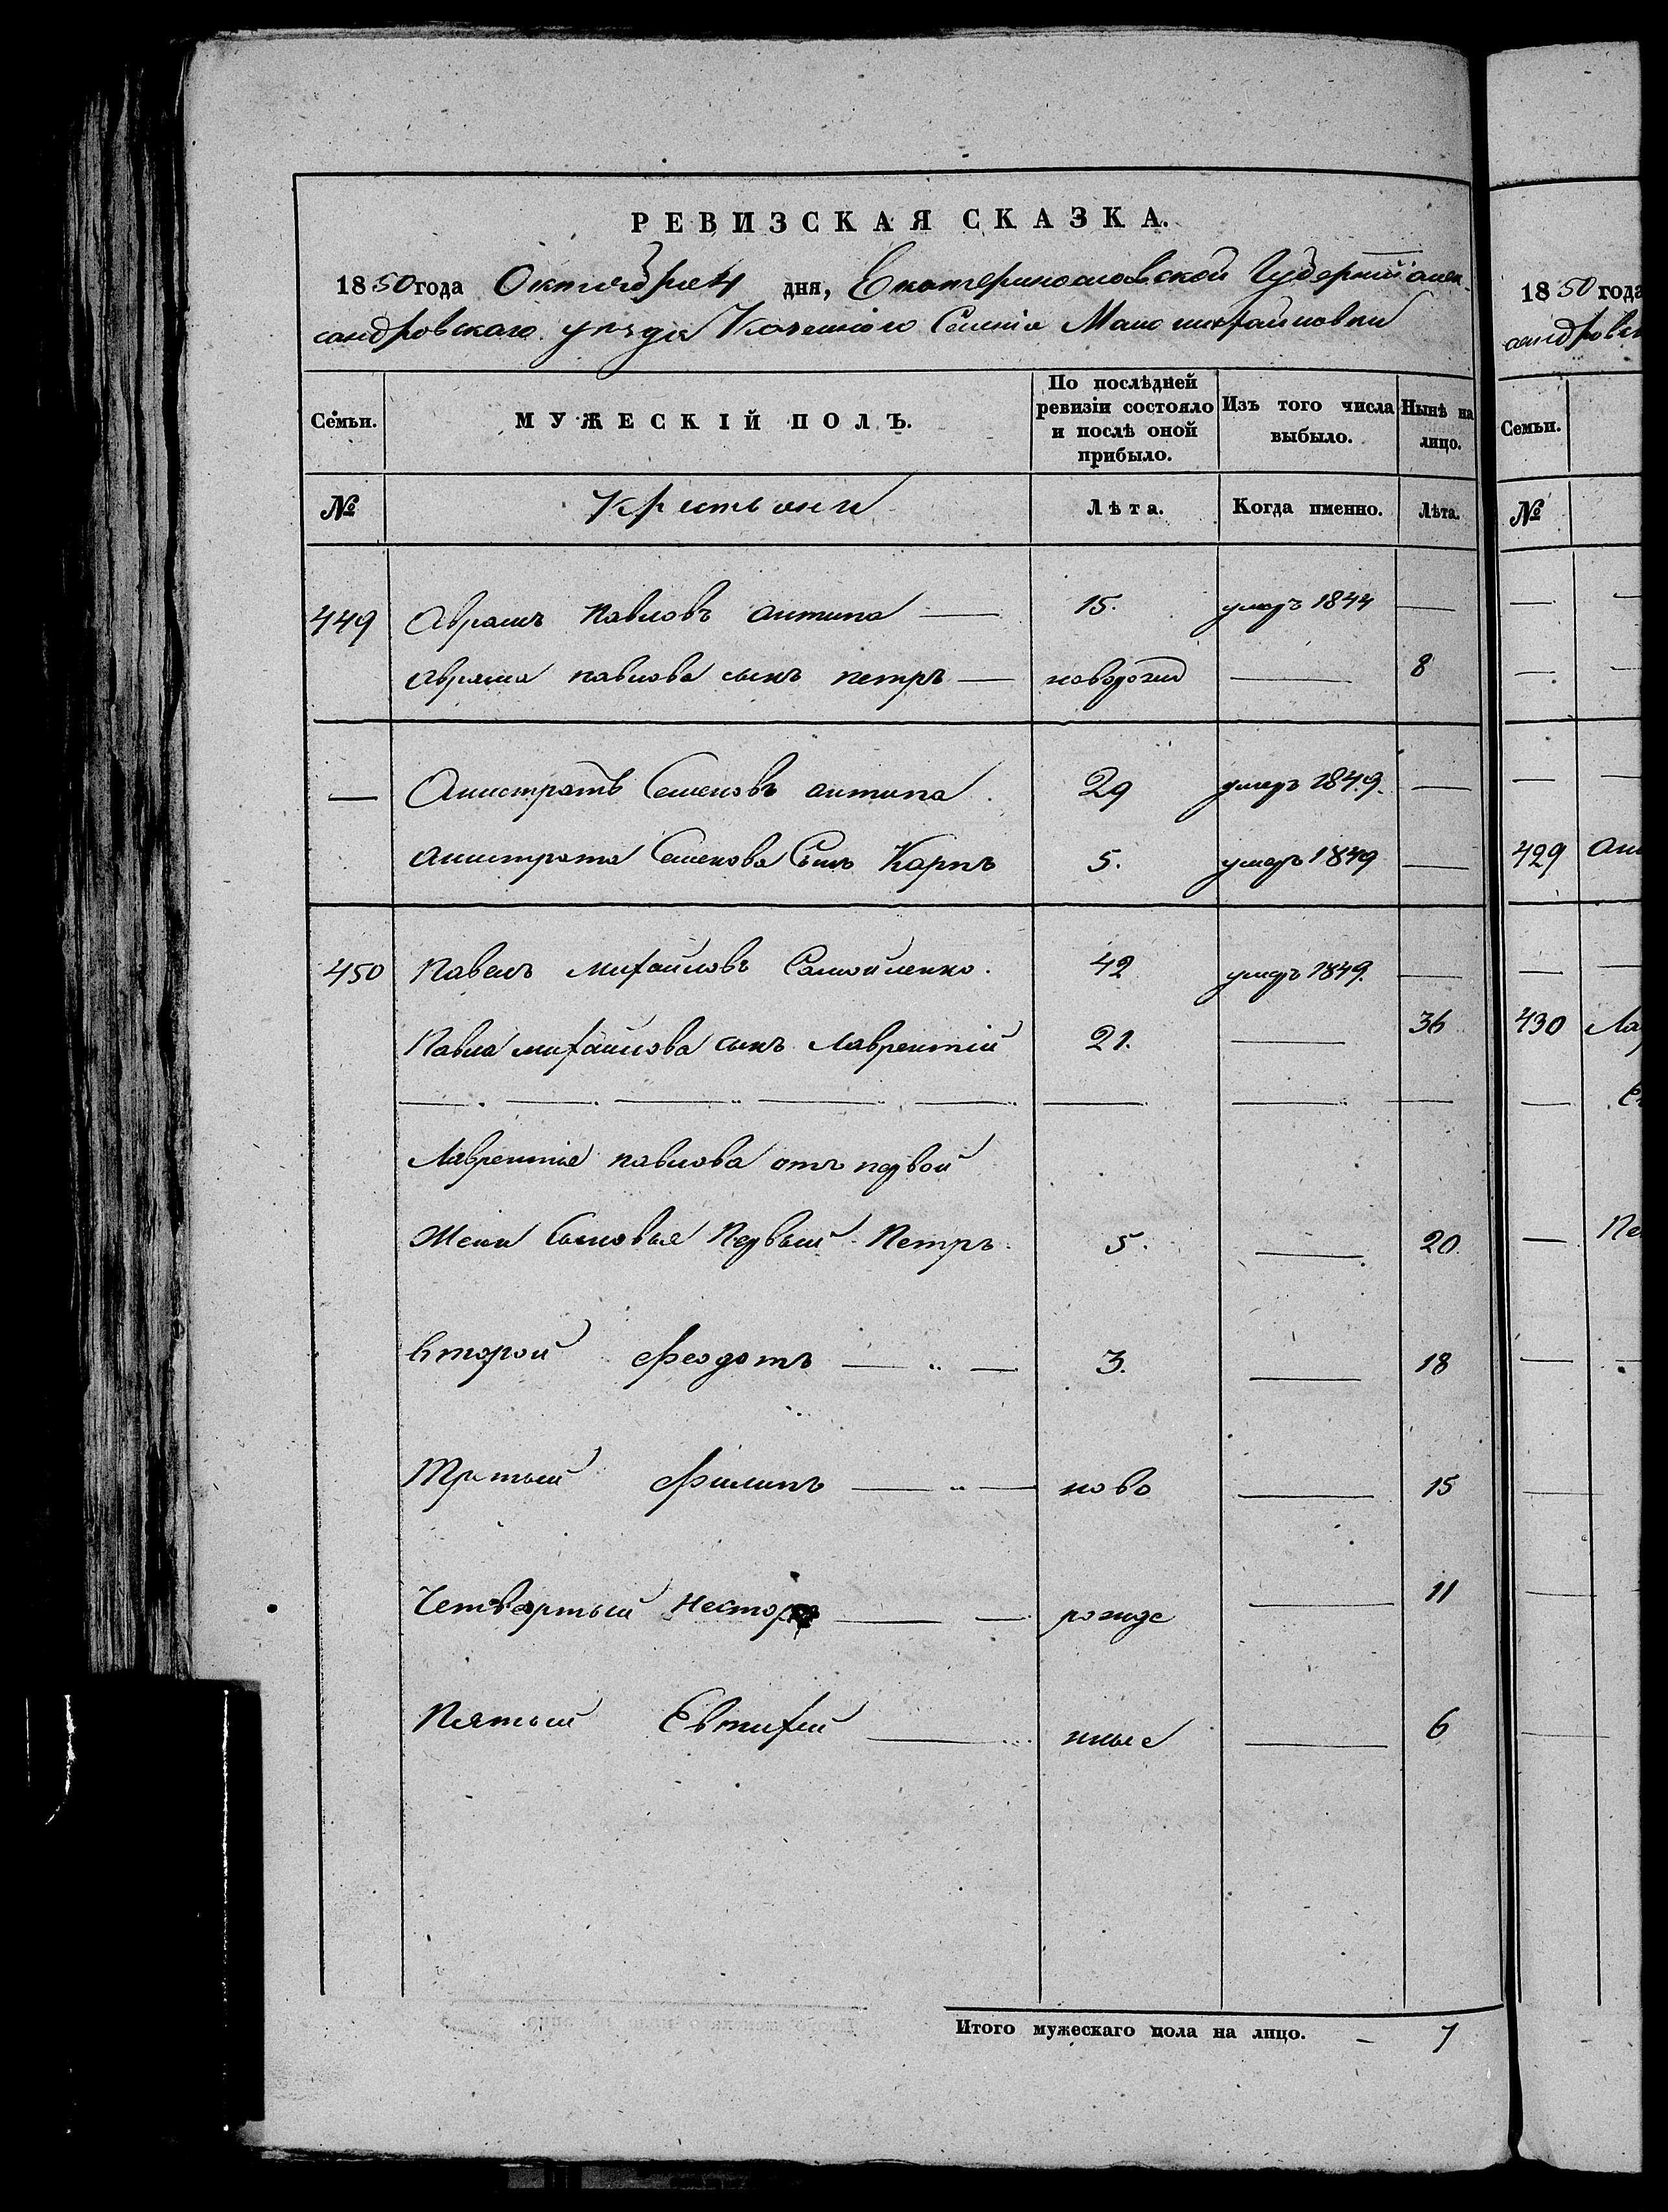 РЕВИЗСКАЯ СКАЗКА.
1850 года Октября 4 дня, Екатеринославской Губернии Алек-
сандровского уезда Казенного Селения Мало михайловки
Семьи.
МУЖЕСКІЙ ПОЛЪ.
По послѣдней
ревизіи состояло
и послѣ оной
прибыло.
Изъ того числа
выбыло.
Нынѣ на
лицо.
№
Крестьяни
Лѣта.
Когда именно.
Лѣта.
449 Аврамъ Павловъ Антипа — 15. умеръ 1844 —
Аврама павлова сынъ петръ — новорожд — 8
— Анистратъ Семеновъ антипа. 29 умеръ 1849. —
Анистрата Семенова Сынъ Карпъ 5. умеръ 1849 —
450 Павелъ михайловъ Самойленко. 42 умеръ 1849. —
Павла михайлова сынъ Лаврентій 21. — 36
Лаврентія павлова отъ первой
Жены Сыновья Первый Петръ 5. — 20.
Второй Феодотъ — 3. — 18
Третый Филипъ — ново — 15
Четвертый Несторъ — рожде — 11
Пятый Евтихей — нные — 6
Итого мужескаго пола на лицо. — 7
1850 года
сандровск
Семьи.
№
429
430